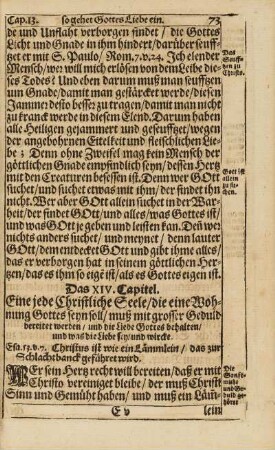 Cap. 13. so gehet Gottes Liebe ein. 73
de und Unflaht verborgen findet / die Gottes
Licht und Gnade in ihm hindert / darüber seuff-
tzet er mit S. Paulo / Rom. 7. v. 24. Ich elender
Mensch / wer will mich erlösen von dem Leibe dieses
Todes? Und eben darum muß man seufftzen
um Gnade / damit man gestärcket werde / diesen
Jammer desto besser zu tragen / damit man nicht
zu kranck werde in diesem Elend. Darum haben
alle Heiligen gejammert und geseufftzet / wegen
der angebohrnen Eitelkeit und fleischlichen Lie-
be; Denn ohne Zweifel mag kein Mensch der
göttlichen Gnade empfindlich seyn / dessen Hertz
mit den Creaturen besessen ist. Denn wer GOtt
suchet / und suchet etwas mit ihm / der findet ihn
nicht. Wer aber GOtt allein suchet in der War-
heit / der findet GOtt / und alles / was Gottes ist /
und was GOtt je geben und leisten kan. Den wer
nichts anders suchet / und meynet / denn lauter
GOtt / dem entdecket GOtt und gibt ihme alles /
das er verborgen hat in seinem göttlichen Her-
tzen / das es ihm so eigē ist / als es Gottes eigen ist.
Was
Seuff-
zen zu
Christo.
Gott ist
allein
zu su-
chen.
Das XIV. Capitel.
Eine jede Christliche Seele / die eine Woh-
nung Gottes seyn soll / muß mit grosser Geduld
bereitet werden / und die Liebe Gottes behalten /
und was die Liebe sey / und wircke.
Esa. 53. v. 7. Christus ist wie ein Lämmlein / das zur
Schlachtbanck geführet wird.
WEr sein Hertz recht will bereiten / daß er mit
Christo vereiniget bleibe / der muß Christi
Sinn und Gemüht haben / und muß ein Läm-
Die
Sanft-
muht
und Ge-
duld ge-
höret
E v lein